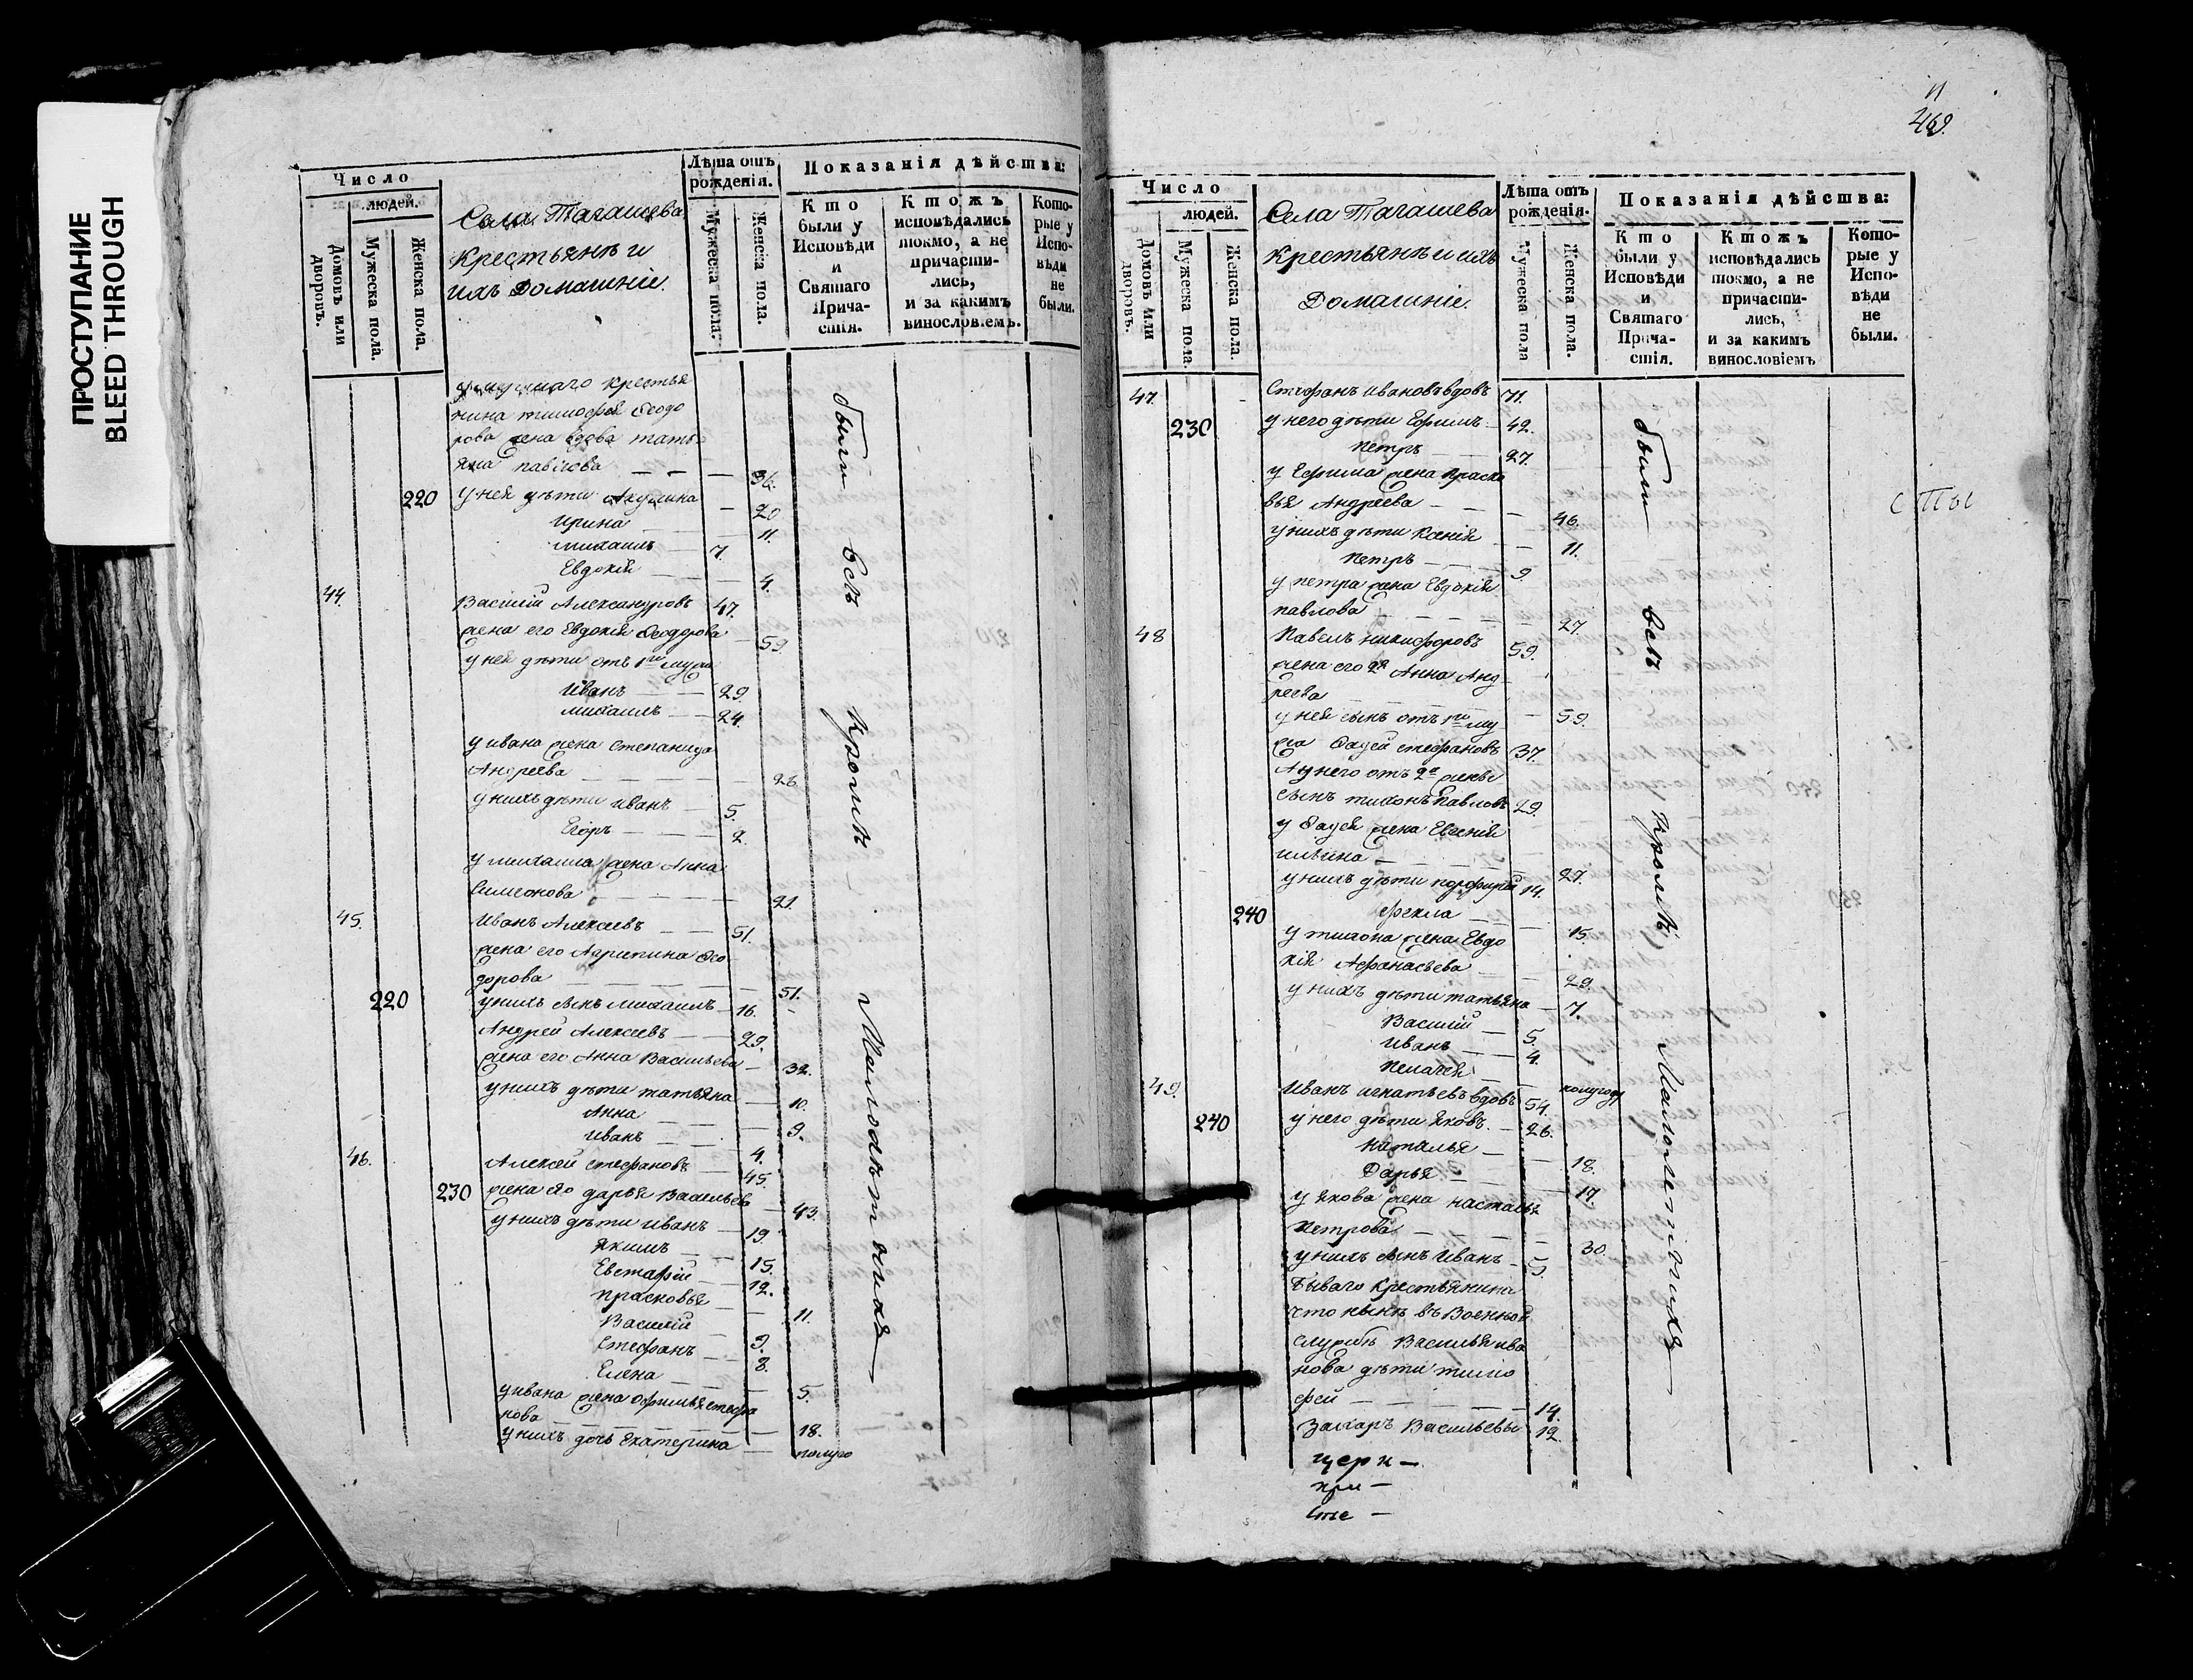 ПРОСТУПАНИЕ
BLEED THROUGH
Число
людей.
Домовъ или дворовъ.
Мужеска пола.
Женска пола.
Села Тагашева
Крестьянѣ и
ихъ Домашніе.
Лѣта отъ рожденія.
Мужеска пола.
Женска пола.
Показанія дѣйства:
Кто были у Исповѣди и Святаго Причастія.
Ктожъ исповѣдались токмо, а не причастились, и за какимъ винословіемъ.
Которые у Исповѣди не были.
умершаго крестья
нина тимофея Ѳеодо
рова жена вдова тать
яна павлова — — — 36.
220 у нея дѣти Акулина — 20
Ирина — 11.
михаилъ — 7.
Евдокія — 4.
44. Василій Александровъ 47.
жена его Евдокія Ѳеодорова — 59.
у нея дѣти отъ 1го мужа
Иванъ — 29.
михаилъ — 24.
у ивана жена степанида
Андреева — 28.
у нихъ дѣти иванъ — 5.
Егоръ — 2.
у михаила жена Анна
Симеонова — 21.
45. Иванъ Алексеевъ — 51.
жена его Агрипина Ѳео
дорова — 51.
220 у нихъ сынъ михаилъ — 16.
Андрей Алексеевъ — 29.
жена его Анна Васильева — 32.
у нихъ дѣти татьяна — 10.
Анна — 9.
Иванъ — 4.
46. Алексей стефановъ — 45.
230 жена его дарья Васильев — 43.
у нихъ дѣти иванъ — 19.
Якимъ — 15.
Евстафій — 12.
прасковья — 11.
Василій — 9.
Стефанъ — 8.
Елена — 5.
у ивана жена Офимья стефа
нова — 18.
у нихъ дочь Екатерина — полуго
были всѣ кромѣ Малолѣтныхъ
11
469.
Число
людей.
Домовъ или дворовъ.
Мужеска пола.
Женска пола.
Села Тагашева
Крестьянѣ и ихъ
Домашніе.
Лѣта отъ рожденія.
Мужеска пола
Женска пола.
Показанія дѣйства:
Кто были у Исповѣди и Святаго Причастія.
Ктожъ исповѣдались токмо, а не причастились, и за какимъ винословіемъ
Которые у Исповѣди не были.
47. Стефанъ ивановъ вдовъ 71.
230 у него дѣти Ефимъ — 42.
Петръ — 27.
у Ефима жена Праско
вья Андреева — 46.
у нихъ дѣти Ксенія — 11.
Петръ — 9.
у петра жена Евдокія
павлова — 27.
48 Павелъ никифоровъ 59.
жена его 2я Анна Анд
реева — 59.
у нея сынъ отъ 1го му
жа Фадей стефановъ 37.
А у него отъ 2й жены
сынъ тихонъ Павловъ 29.
у Фадея жена Евгенія
ильина — 27.
у нихъ дѣти порфирей 14.
240 фекла — 15.
у тихона жена Евдо
кія Афанасьева — 29.
у нихъ дѣти татьяна — 7.
Василій — 5.
Иванъ — 4.
Пелагея — полугоду
49. Иванъ игнатьевъ вдовъ 54.
240 у него дѣти Яковъ. — 26.
Наталья — 18.
Дарья — 17.
у якова жена настасья
Петрова — 30.
у нихъ сынъ Иванъ — 5.
Бываго крестьянина
что нынѣ въ Военной
службѣ Василья ива
нова дѣти тимо
фей — 14.
Захаръ Васильевы 12.
церк —
при —
сте —
были всѣ кромѣ Малолетныхъ
СТЫ